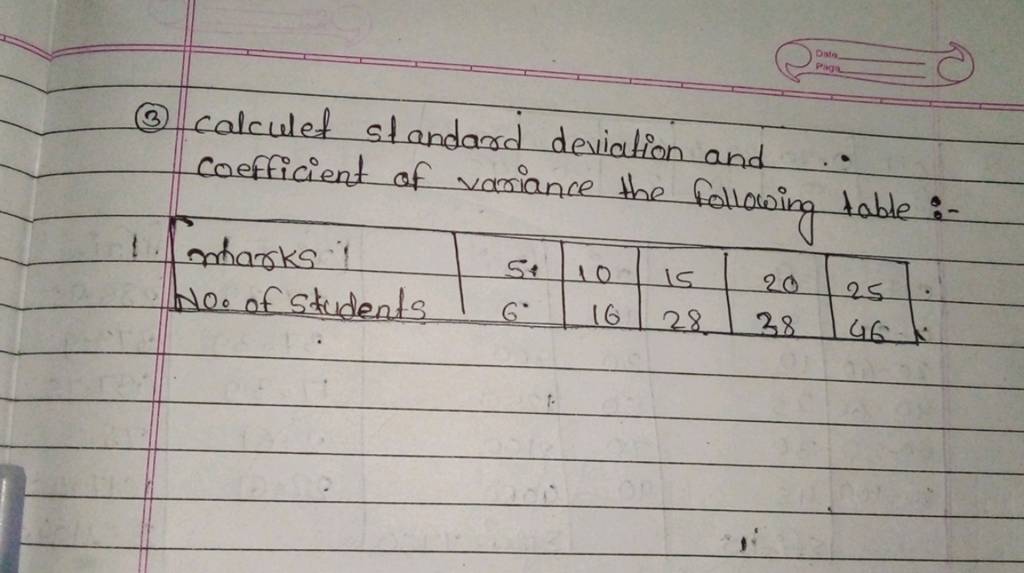 Date
Page
③ calculet standard deviation and
coefficient of variance the following table :-
marks 5 10 15 20 25
No. of students 6 16 28 38 46